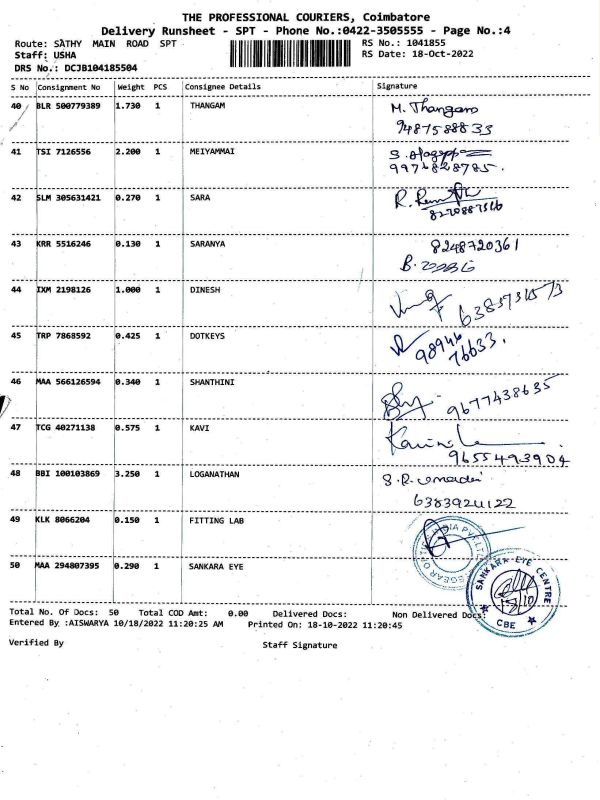 THE PROFESSIONAL COURIERS, Coimbatore
Delivery Runsheet - SPT - Phone No.:0422-3505555 - Page No.:4
Route: SATHY MAIN ROAD SPT
RS No.: 1041855
Staff: USHA
RS Date: 18-Oct-2022
DRS No.: DCJB104185504
S No Consignment No Weight PCS Consignee Details Signature
40 BLR 500779389 1.730 1 THANGAM M. Thangam
9487588833
41 TSI 7126556 2.200 1 MEIYAMMAI S.
9976828785.
42 SLM 305631421 0.270 1 SARA R.
43 KRR 5516246 0.130 1 SARANYA 8248720361
B.
44 IXM 2198126 1.000 1 DINESH
45 TRP 7868592 0.425 1 DOTKEYS
98946
76633.
46 MAA 566126594 0.340 1 SHANTHINI
9677438635
47 TCG 40271138 0.575 1 KAVI
9655493904
48 BBI 100103869 3.250 1 LOGANATHAN S.R.
6383924122
49 KLK 8066204 0.150 1 FITTING LAB
50 MAA 294807395 0.290 1 SANKARA EYE
SANKARA-EYE CENTRE
CBE
Total No. Of Docs: 50 Total COD Amt: 0.00 Delivered Docs: Non Delivered Docs:
Entered By :AISWARYA 10/18/2022 11:20:25 AM Printed On: 18-10-2022 11:20:45
Verified By
Staff Signature